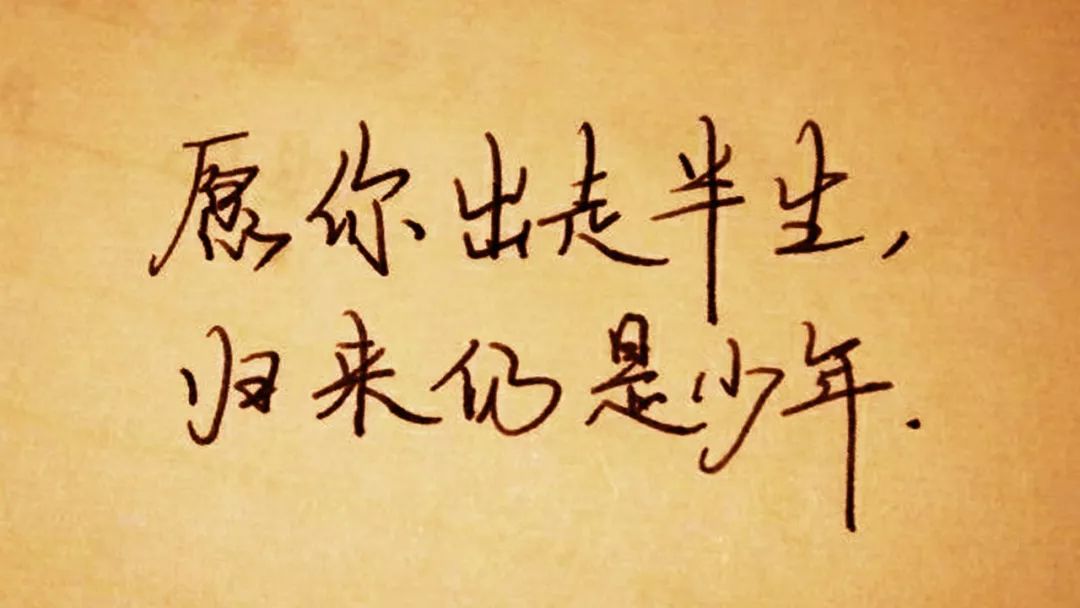 愿你出走半生,
归来仍是少年.